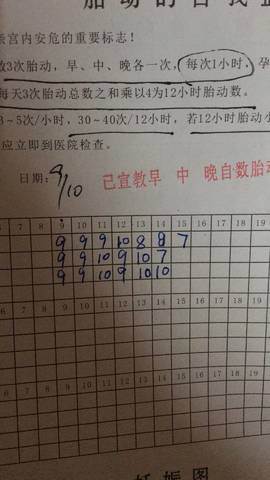 胎动的自我监
宫内安危的重要标志！
数3次胎动，早、中、晚各一次，每次1小时，孕
每天3次胎动总数之和乘以4为12小时胎动数。
3～5次/小时，30～40次/12小时，若12小时胎动小
应立即到医院检查。
日期：9/10 已宣教早 中 晚自数胎动
6 7 8 9 10 11 12 13 14 15 16 17 18 19
9 9 9 10 8 8 7
9 9 10 9 10 7
9 9 10 9 10 10
5 6 7 8 9 10 11 12 13 14 15 16 17 18 19
5 6 7 8 9 10 11 12 13 14 15 16 17 18 19
妊娠图